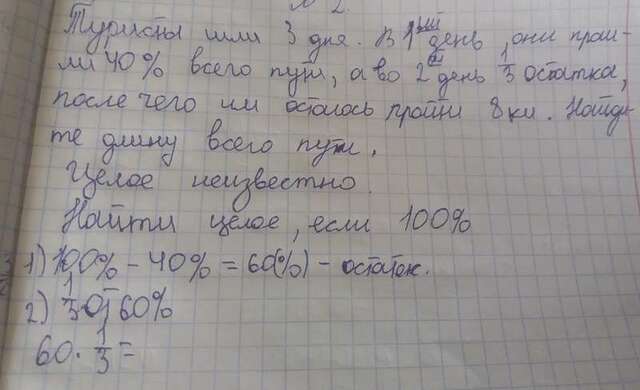 № 2.
Туристы шли 3 дня. В 1ый день они прош-
ли 40% всего пути, а во 2й день 1/3 остатка,
после чего им осталось пройти 8 км. Найди-
те длину всего пути.
Целое неизвестно.
Найти целое, если 100%
1) 100% - 40% = 60(%) - остаток.
2) 1/3 от 60%
60 · 1/3 =